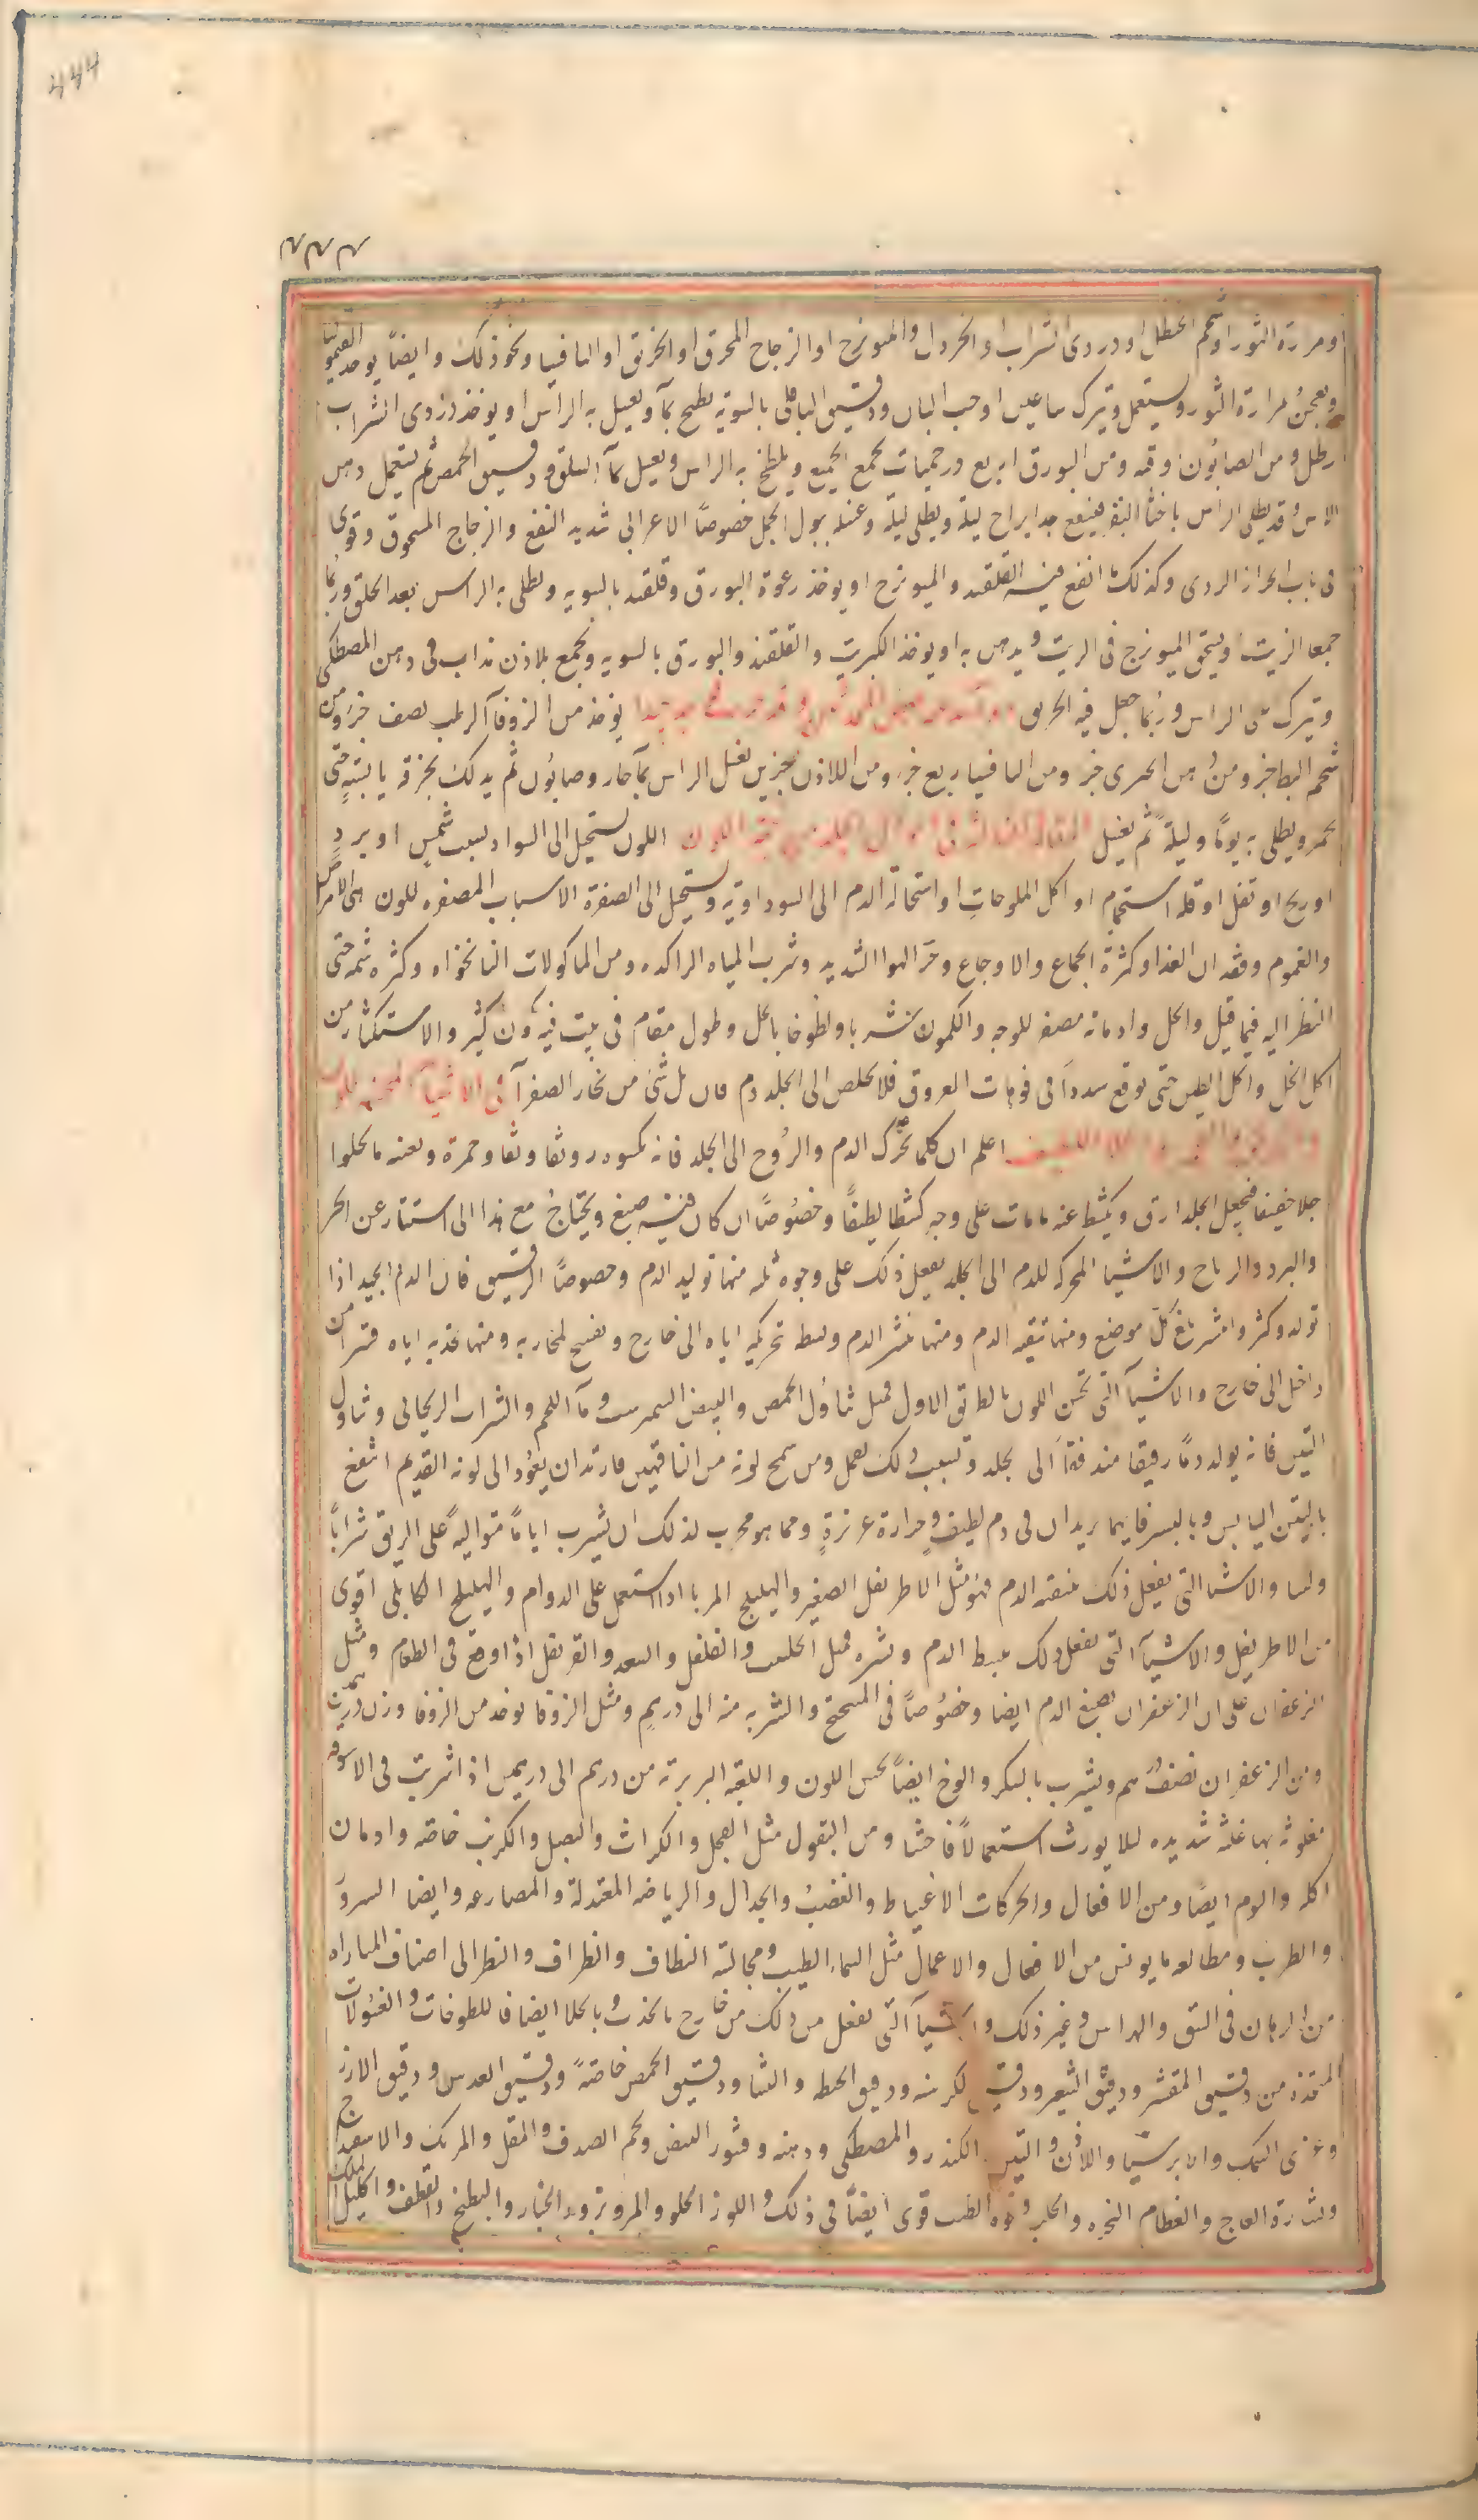 ۴۴۴
او مرارة الثور او شحم الحنظل او دردى الشراب او الخردل والميويزج او الزجاج المحرق او الخربق او الثافسيا ونحو ذلك وايضاً يوخذ القيموليا
ويعجن بمرارة الثور ويستعمل ويترك ساعتين او حب البان ودقيق الباقلى بالسوية يطبخ بمآ ويغسل به الراس او يوخذ دردى الشراب
رطل ومن الصابون اوقيه ومن البورق اربع درخميات يجمع الجميع ويلطخ به الراس ويغسل بمآ السلق ودقيق الحمص ثم يستعمل دهن
الاس وقد يطلى الراس باخثا البقر فينفع جدا يراح ليلة ويطلى ليلة وغسله ببول الجمل خصوصاً الاعرابى شديد النفع والزجاج المسحوق وقوى
فى باب الحزاز الردى وكذلك انفع منه القلقند والميويزج او يوخذ رغوة البورق وقلقند بالسويه ويطلى به الراس بعد الحلق وربما
جمعا الزيت او يسحق الميويزج فى الزيت ويدهن به او يوخذ الكبريت والقلقند والبورق بالسويه ويجمع بلاذن مذاب فى دهن المصطكى
ويترك على الراس وربما جعل فيه الخربق يوخذ من الزوفآ الرطب نصف جزء ومن
شحم البط جز ومن دهن الخيرى جز ومن الثافسيا ربع جز ومن اللاذن جزين يغسل الراس بمآ حار وصابون ثم يدلك بخرقة يابسة حتى
يحمر ويطلى به يوماً وليلة ثم يغسل اللون يستحيل الى السواد بسبب شمس او برد
او ريح او تفل او قلة استحمام او اكل الملوحات او استحالة الدم الى السوداوية ويستحيل الى الصفرة الاسباب المصفره للون هى الامراض
والغموم وفقدان الغذا وكثرة الجماع والاوجاع وحر الهوا الشديد وشرب المياه الراكده ومن الماكولات النانخواه وكثره شمه حتى
النظر اليه فيما قيل والخل وادمانه مصفر للوجه والكمون شربا ولطوخا بالخل وطول مقام فى بيت فيه كمون كثير والاستكثار من
اكل الخل واكل الطين حتى يوقع سدداً فى فوهات العروق فلا يخلص الى الجلد دم قان بل شئ من بخار الصفرآ فى الاشيآ المحسنه للون
اعلم ان كلما تحرك الدم والروح الى الجلد فانه يكسوه رونقا ونقا وحمرة ويعينه ما يجلوا
جلا خفيفا فيجعل الجلد ارق ويكشط عنه ما مات على وجه كشطا لطيفاً وخصوصاً ان كان فيه صبغ ويحتاج مع هذا الى استتار عن الحر
والبرد والرياح والاشيا المحركه للدم الى الجلد يفعل ذلك على وجوه ثلثه منها توليد الدم وخصوصاً الرقيق فان الدم الجيد اذا
تولد وكثر وانتشر بلغ كل موضع ومنها تنقيه الدم ومنها نشر الدم وبسط تحريكه اياه الى خارج وتفتيح لمجاريه ومنها جذبه اياه قسرا من
داخل الى خارج والاشيآ التى تحسن اللون بالطريق الاول فمثل تناول الحمص والبيض النيمرشت ومآ اللحم والشراب الريحانى وتناول
التين فانه يولد دماً رقيقا مندفعاً الى الجلد وبسبب ذلك يقمل ومن سمج لونه من الناقهين فارتد ان يعود الى لونه القديم انتفع
بالتين اليابس وبالبسر فانهما يزيدان فى دم لطيف وحرارة غريزية ومما هو مجرب لذلك ان يشرب اياماً متوالية على الريق شراباً
ولبنا والاشيا التى يفعل ذلك بتنقيه الدم فهو مثل الاطريفل الصغير والهليلج المربا اذا استعمل على الدوام والهليلج الكابلى اقوى
من الاطريفل والاشيآ التى يفعل ذلك ببسط الدم ونشره فمثل الحلتيت والفلفل والسعد والقرنفل اذا وقع فى الطعام ومثل
الزعفران على ان الزعفران يصبغ الدم ايضا وخصوصاً فى الميبختج والشربه منه الى درهم ومثل الزوفا يوخذ من الزوفا وزن درهمين
ومن الزعفران نصف درهم ويشرب بالسكر والوج ايضاً يحسن اللون واللعبة البربرية من درهم الى درهمين اذا شربت فى الاسوقه
مغلوثه بها غلثه شديده لئلا يورث استعمالاً فاحشا ومن البقول مثل الفجل والكراث والبصل والكرنب خاصه وادمان
اكله والثوم ايضا ومن الافعال والحركات الاغتياظ والغضب والجدال والرياضه المعتدلة والمصارعه وايضا السرور
والطرب ومطالعه ما يونس من الافعال والاعمال مثل السماع الطيب ومجالسة النظاف والظراف والنظر الى اصناف المباراه
من الرهان فى السبق والهراش وغير ذلك والاشيآ التى تفعل من ذلك من خارج بالجذب وبالجلا ايضا فاللطوخات والغسولات
المتخذه من دقيق المقشر ودقيق الشعير ودقيق الكرسنه ودقيق الحنطه والنشا ودقيق الحمص خاصةً ودقيق العدس ودقيق الارز
وغرى السمك والايرسيا واللاذن والتين الكندر والمصطكى ودهنه وقشور البيض ولحم الصدف والمقل والمرتك والاسفيداج
ونشارة العاج والعظام النخره والجبن الرطب قوى ايضاً فى ذلك واللوز الحلو والمر وبزر الخيار والبطيخ والقطف واكليل الملك